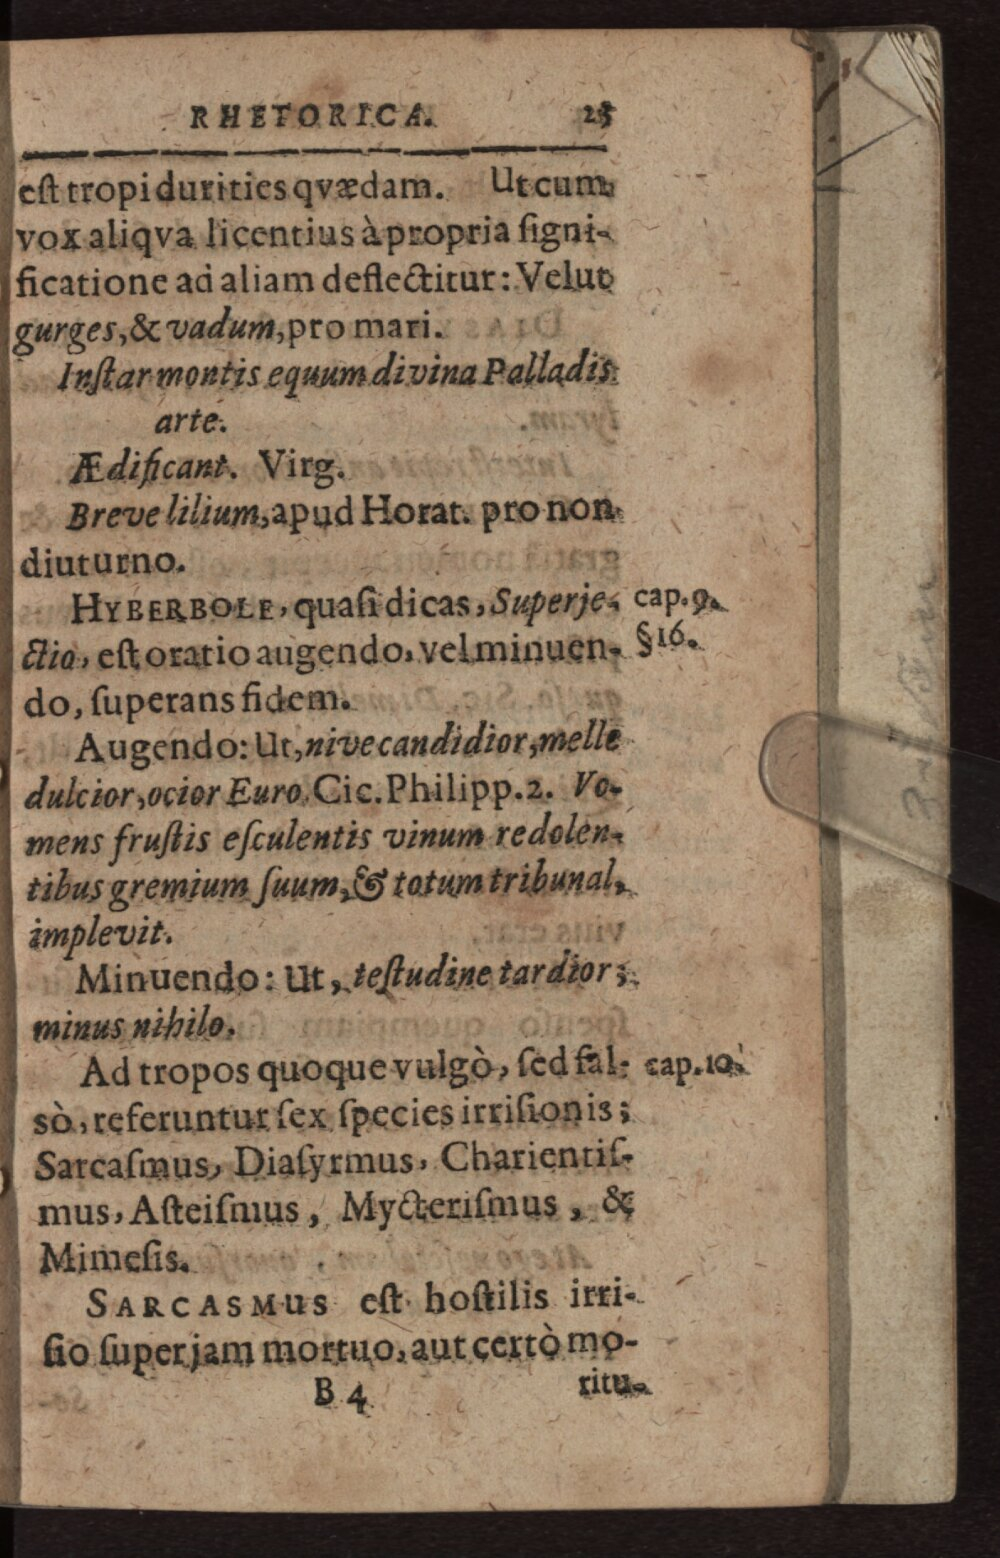 RHETORICA. 25
eſt tropi durities qvædam. Ut cum
vox aliqva licentius à propria ſigni-
ficatione ad aliam deflectitur: Velut
gurges, & vadum, pro mari.
Inſtar montis equum divina Palladis
arte.
Ædificant. Virg.
Breve lilium, apud Horat. pro non
diuturno.
HYBERBOLE, quaſi dicas, Superje- cap. 9.
ctio, eſt oratio augendo, vel minuen- § 16.
do, ſuperans fidem.
Augendo: Ut, nive candidior, melle
dulcior, ocior Euro, Cic. Philipp. 2. Vo-
mens fruſtis eſculentis vinum redolen-
tibus gremium ſuum, & totum tribunal,
implevit.
Minuendo: Ut, teſtudine tardior;
minus nihilo.
Ad tropos quoque vulgò, ſed fal- cap. 10.
sò, referuntur ſex ſpecies irriſionis;
Sarcaſmus, Diaſyrmus, Charientiſ-
mus, Aſteiſmus, Mycteriſmus, &
Mimeſis.
SARCASMUS eſt hoſtilis irri-
ſio ſuper jam mortuo, aut certò mo-
B 4 ritu-